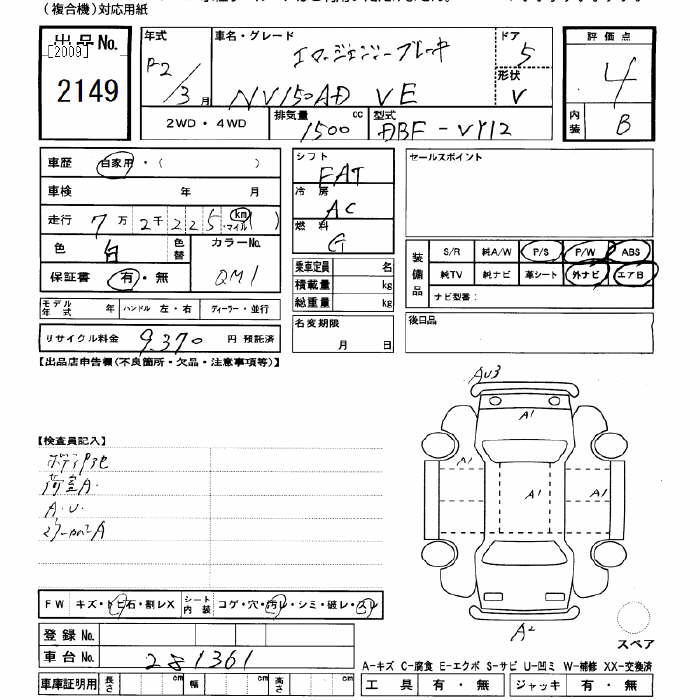 (複合機)対応用紙
出品No.
[2009]
2149
年式
R2/3月
車名・グレード
エマージェンシーブレーキ
NV150AD VE
ドア
5
形状
V
評価点
4
内装
B
2WD・4WD
排気量
1500 cc
型式
DBF-VY12
車歴 自家用・( )
車検 年 月
走行 7万2千225 km マイル ( )
色 白 色替
カラーNo.
QM1
保証書 有・無
モデル年式 年 ハンドル 左・右 ディーラー・並行
リサイクル料金 9,370 円 預託済
シフト
FAT
冷房
AC
燃料
G
乗車定員 名
積載量 kg
総重量 kg
名変期限
月 日
セールスポイント
装備品
S/R 純A/W P/S P/W ABS
純TV 純ナビ 革シート 外ナビ エアB
ナビ型番:
後日品
【出品店申告欄(不良箇所・欠品・注意事項等)】
【検査員記入】
荷室A.
A.U.
AU3
A1
A1
A1
A1
A2
スペア
FW キズ・トビ石・割レX シート内装 コゲ・穴・汚レ・シミ・破レ・スレ
登録No.
車台No. 281361
A-キズ C-腐食 E-エクボ S-サビ U-凹ミ W-補修 XX-交換済
車庫証明用 長さ cm 幅 cm 高さ cm
工具 有・無 ジャッキ 有・無